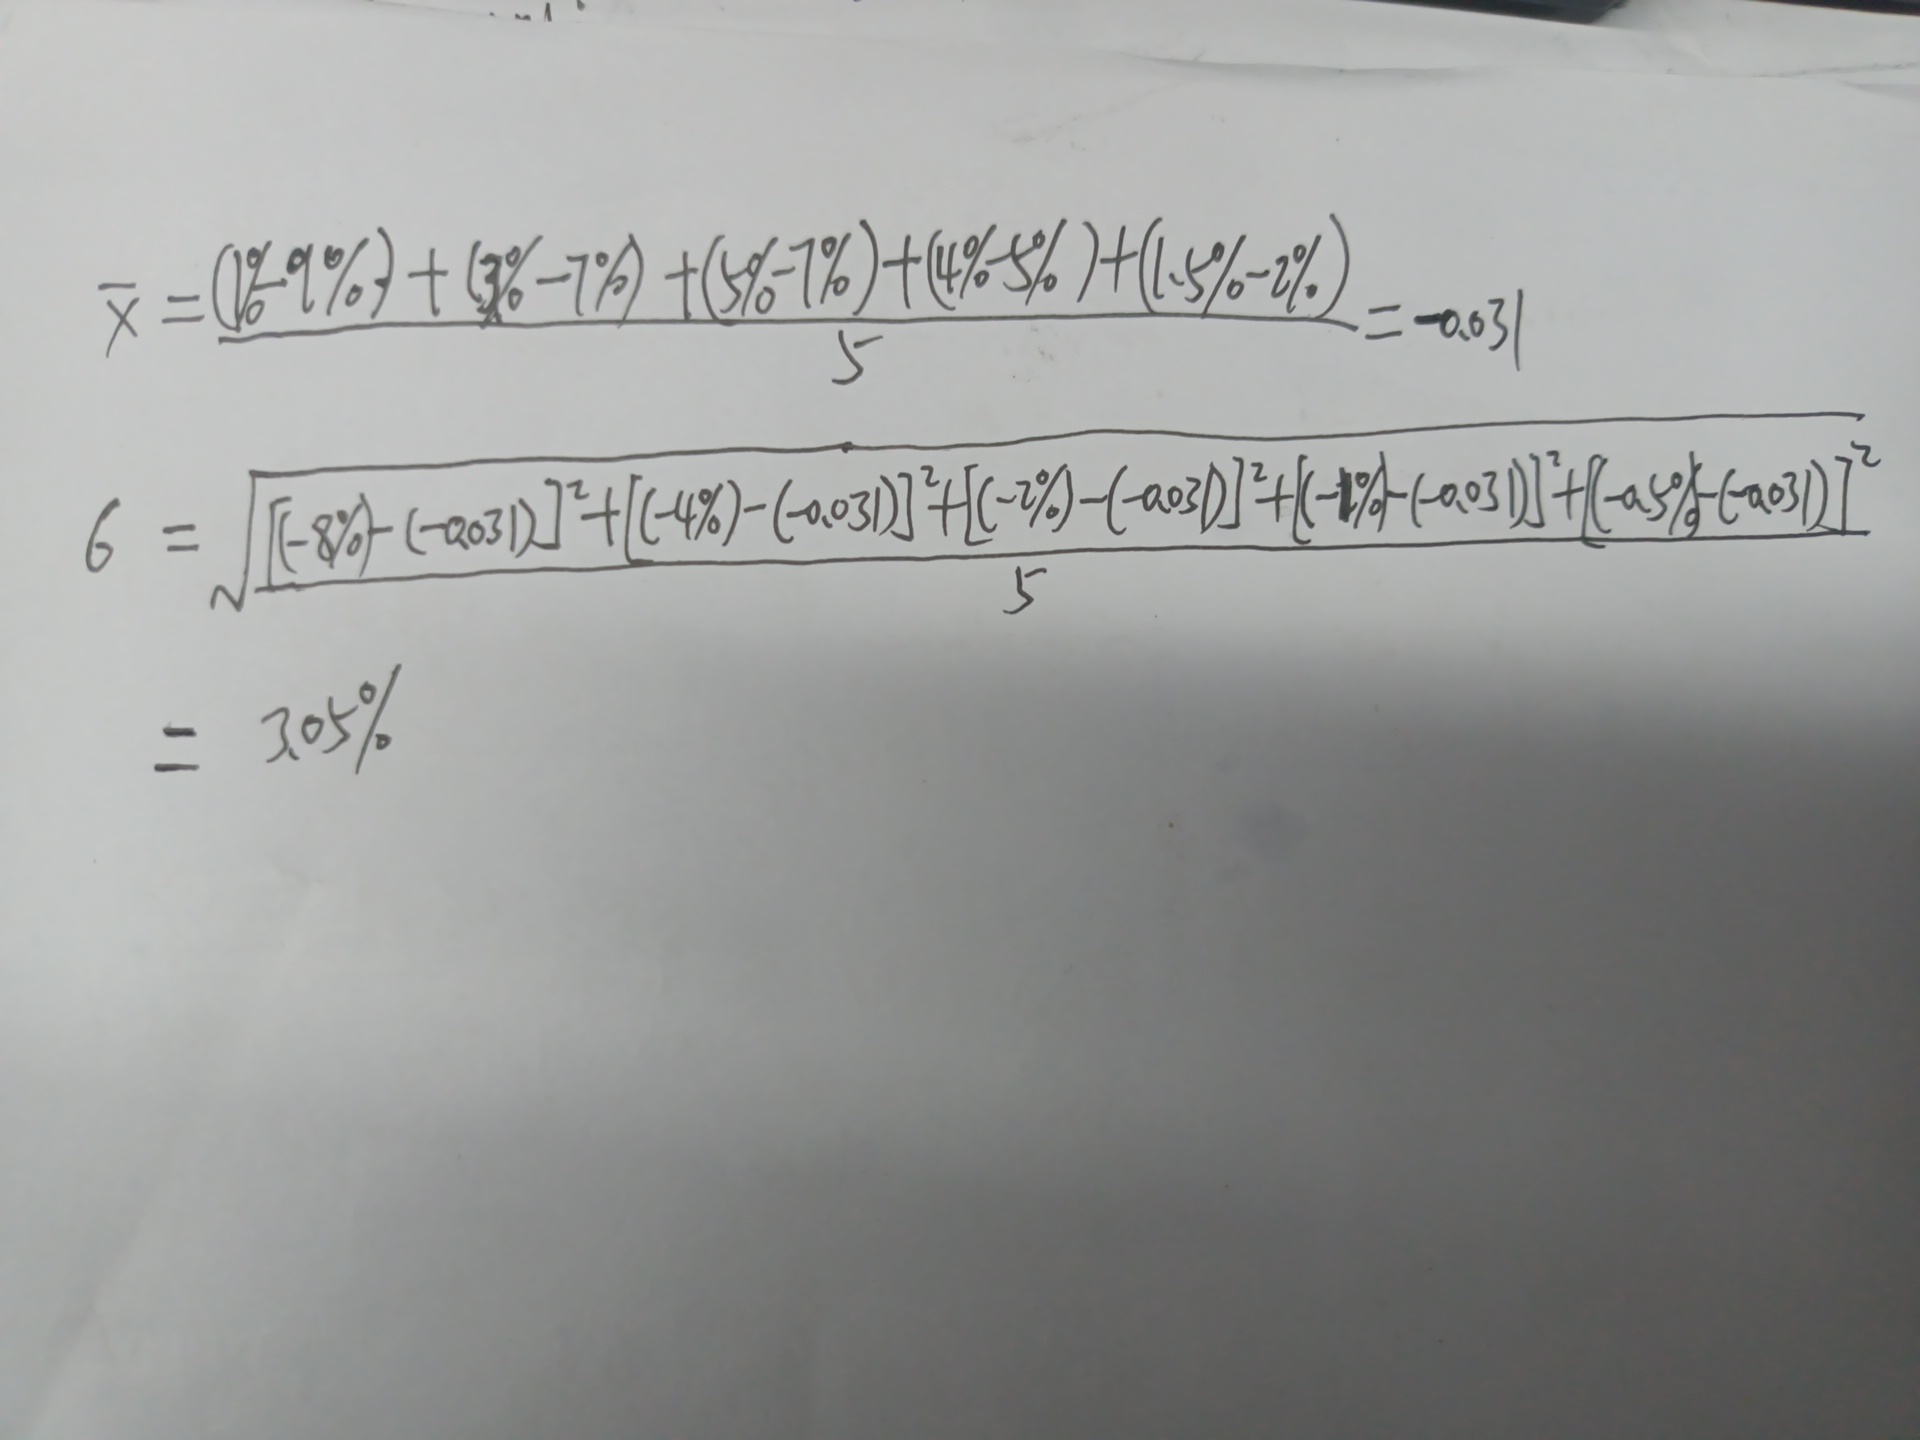 x̄ = ((1%-9%) + (3%-7%) + (5%-7%) + (4%-5%) + (1.5%-2%)) / 5 = -0.031
6 = √(([(-8%)-(-0.031)]² + [(-4%)-(-0.031)]² + [(-2%)-(-0.031)]² + [(-1%)-(-0.031)]² + [(-0.5%)-(-0.031)]²) / 5)
= 3.05%